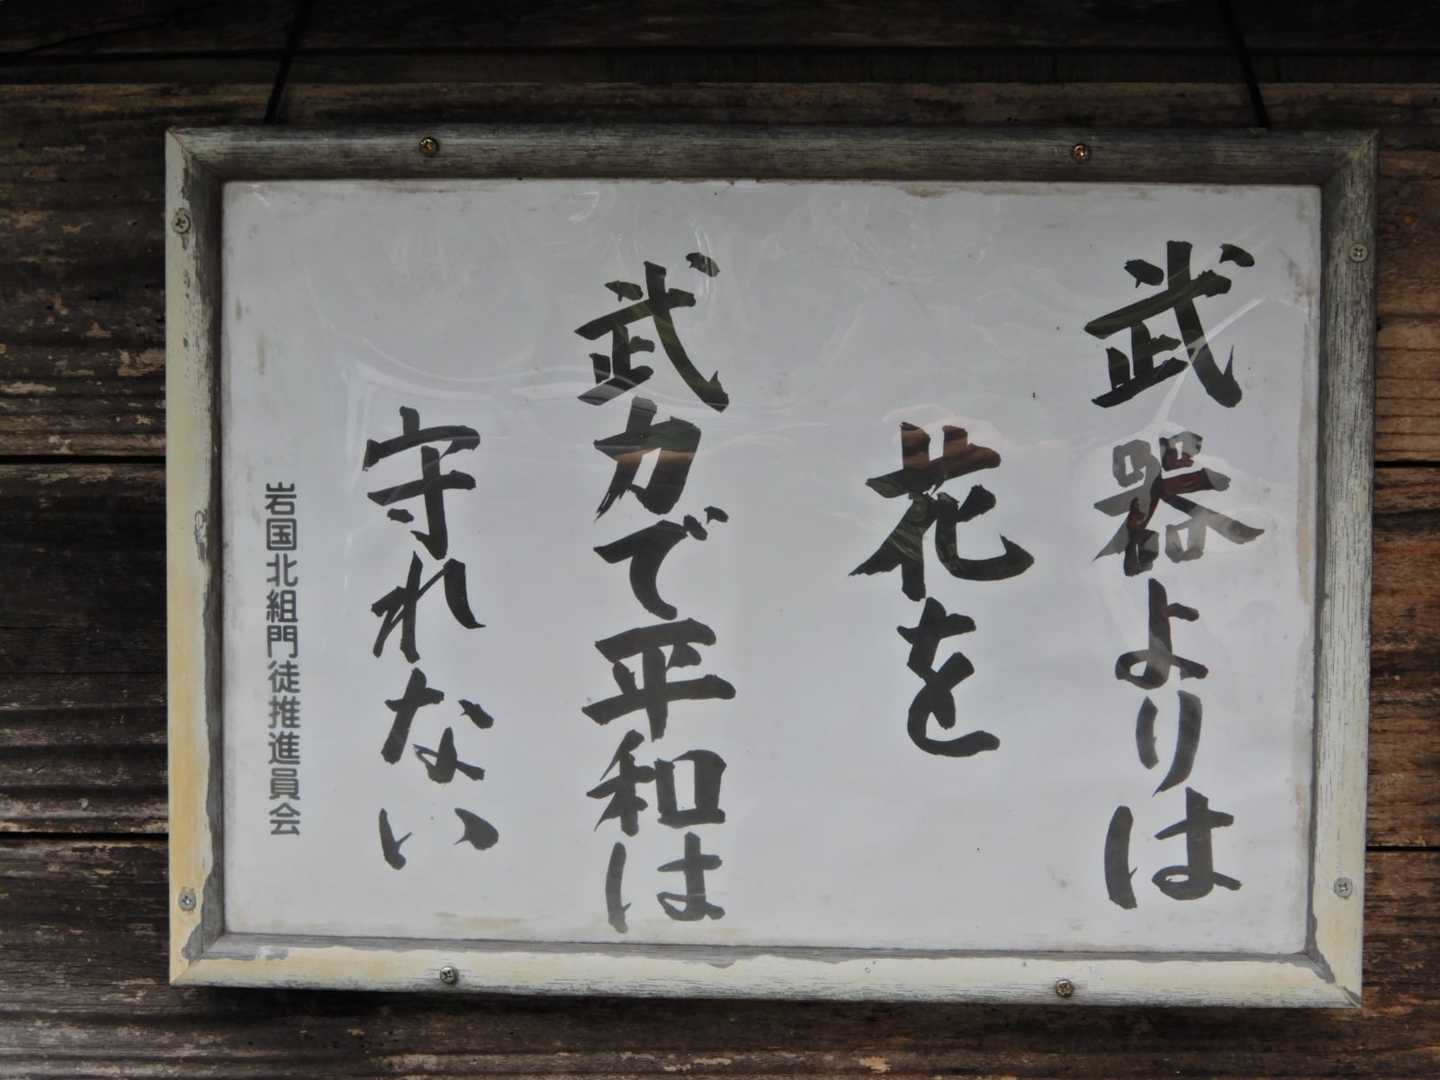 武器よりは
花を
武力で平和は
守れない
岩国北組門徒推進員会